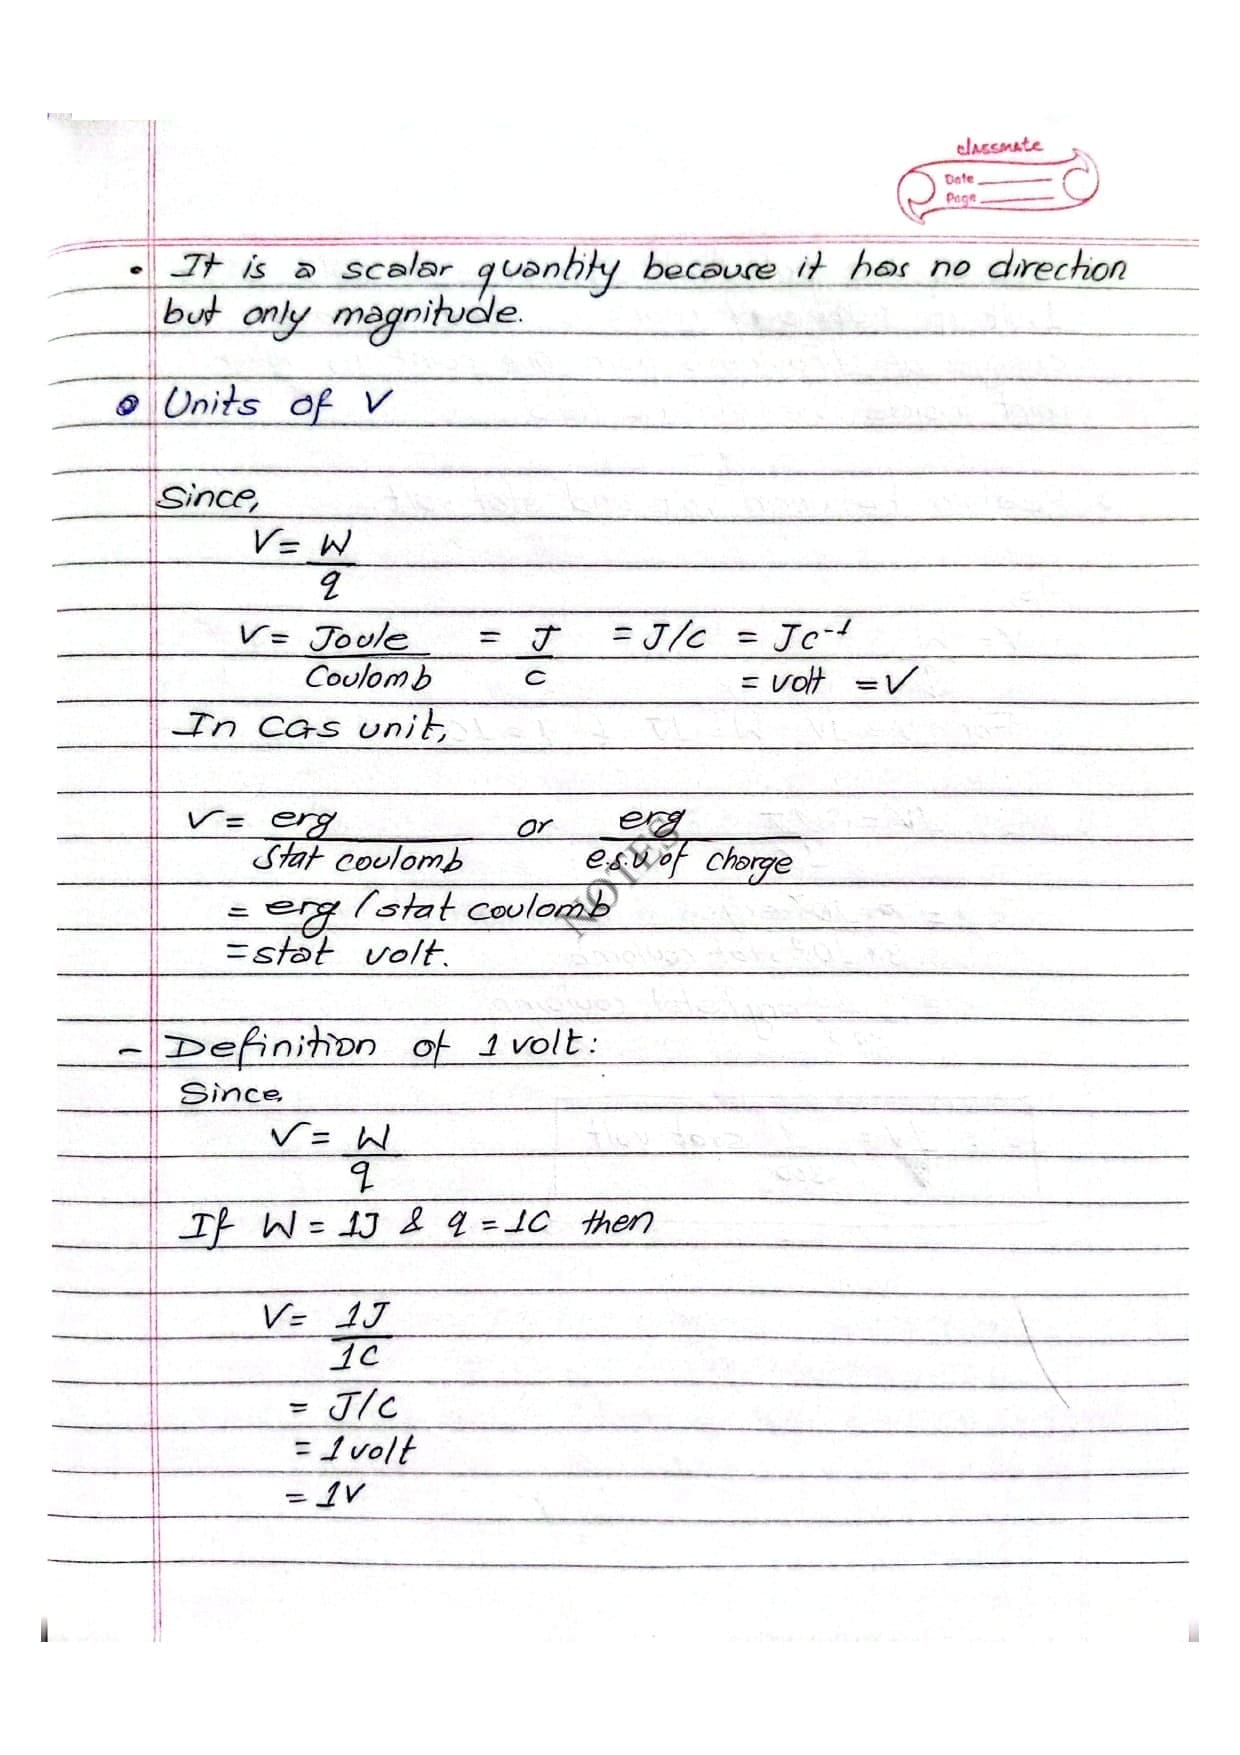 classmate
Date
Page
• It is a scalar quantity because it has no direction
but only magnitude.
Units of V
Since,
V = W
q
V = Joule = J = J/C = JC⁻¹
Coulomb C = volt = V
In CGS unit,
V = erg or erg
Stat coulomb e.s.u of charge
NOTES
= erg / stat coulomb
= stat volt.
- Definition of 1 volt:
Since,
V = W
q
If W = 1J & q = 1C then
V = 1J
1C
= J/C
= 1 volt
= 1V